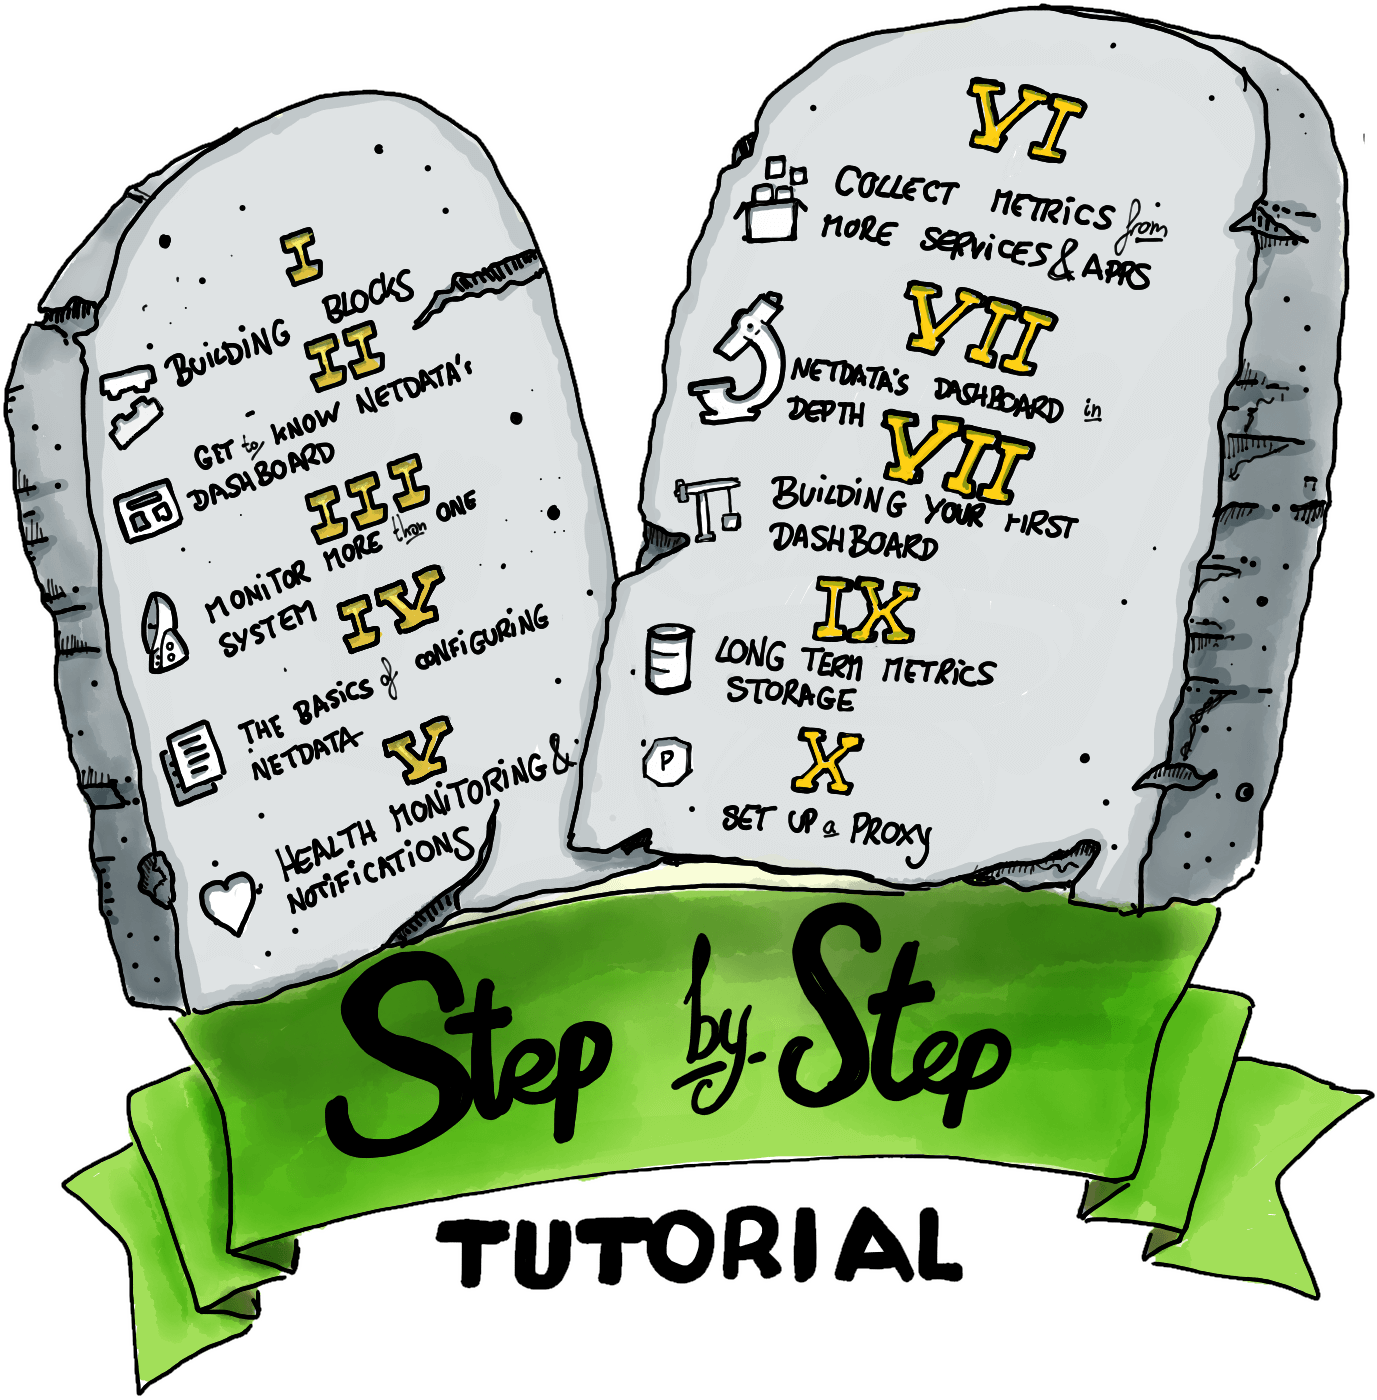 I
BUiLDiNG BLOCKS
II
GET to KNOW NETDATA's
DASHBOARD
III
MONiTOR MORE than ONE
SYSTEM
IV
THE BASiCS of CONFiGURiNG
NETDATA
V
HEALTH MONiTORiNG &
NOTiFiCATiONS
VI
COLLECT METRiCS from
MORE SERViCES & APPS
VII
NETDATA'S DASHBOARD in
DEPTH
VII
BUiLDiNG YOUR FiRST
DASHBOARD
IX
LONG TERM METRiCS
STORAGE
P
X
SET UP a PROXY
Step by Step
TUTORIAL